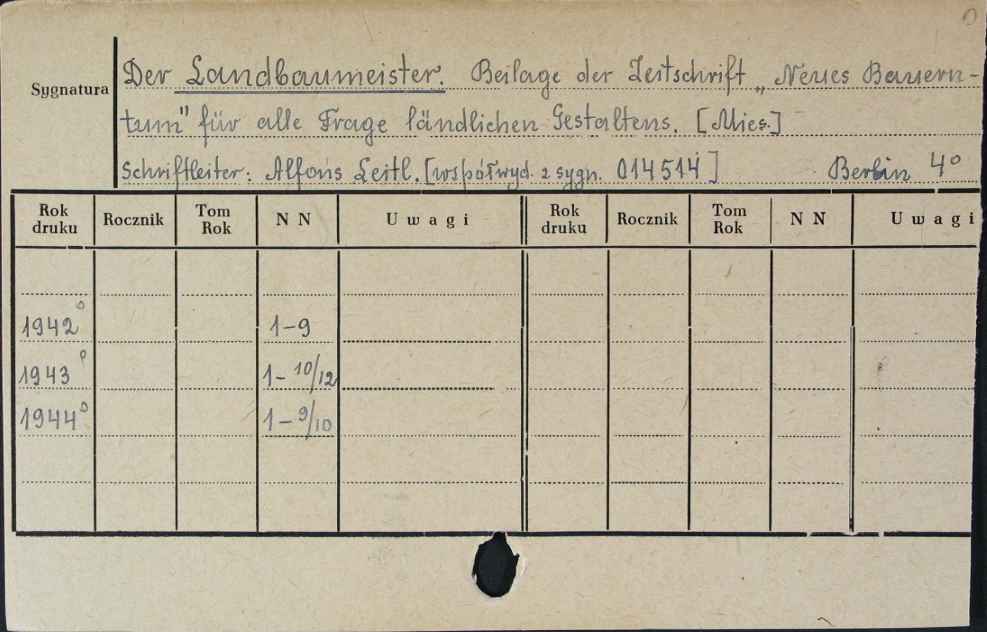 Sygnatura
Der Landbaumeister. Beilage der Zeitschrift „Neues Bauern-
tum" für alle Frage ländlichen Gestaltens. [Mies.]
Schriftleiter: Alfons Leitl. [współwyd. z sygn. 014514] Berlin 4°
Rok druku Rocznik Tom Rok N N Uwagi Rok druku Rocznik Tom Rok N N Uwagi
1942° 1-9
1943° 1-10/12
1944° 1-9/10